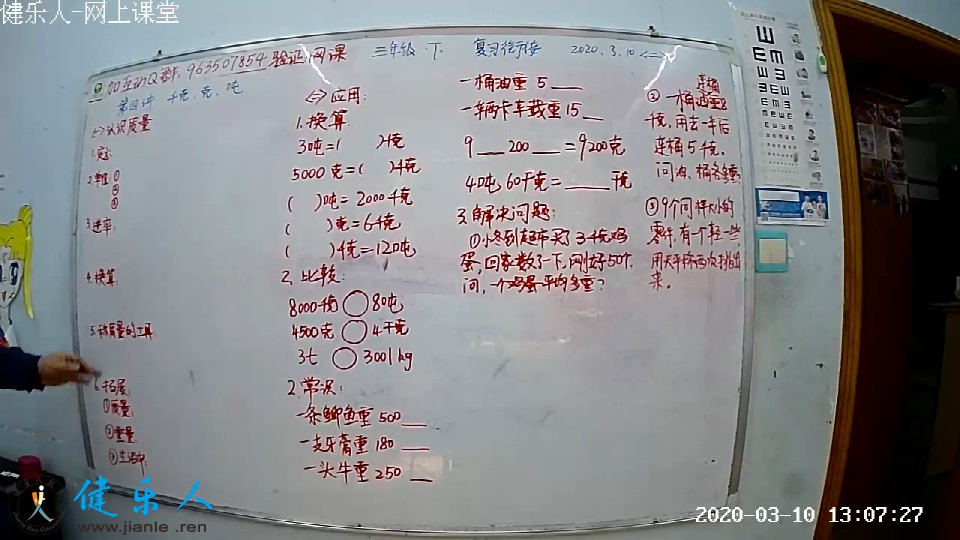 健乐人-网上课堂
加互动Q群:963507854验证:网课
三年级 下 复习衔接 2020.3.10
第四讲 千克、克、吨
<一>认识质量
1.定:
2.单位 ①
②
③
3.进率:
4.换算:
5.称质量的工具:
6.拓展
①质量:
②重量
③生活中:
<二>应用:
1.换算
3吨=( )千克
5000克=( )千克
( )吨=2000千克
( )克=6千克
( )千克=12吨
2.比较:
8000千克○80吨
4500克○4千克
3t○3001kg
2.常识:
一条鲫鱼重500__
一支牙膏重180___
一头牛重250__
一桶油重 5___
一辆卡车载重15__
9___200___=9200克
4吨60千克=____千克
3.解决问题:
①小冬到超市买了3千克鸡
蛋,回家数了一下,刚好50个,
问,一个鸡蛋平均多重?
连桶
②一桶油重8
千克,用去一半后
连桶5千克,
问油、桶各多重
③9个同样大小的
零件,有一个轻一些
用天平称两次找出
来。
健乐人
www.jianle.ren
2020-03-10 13:07:27